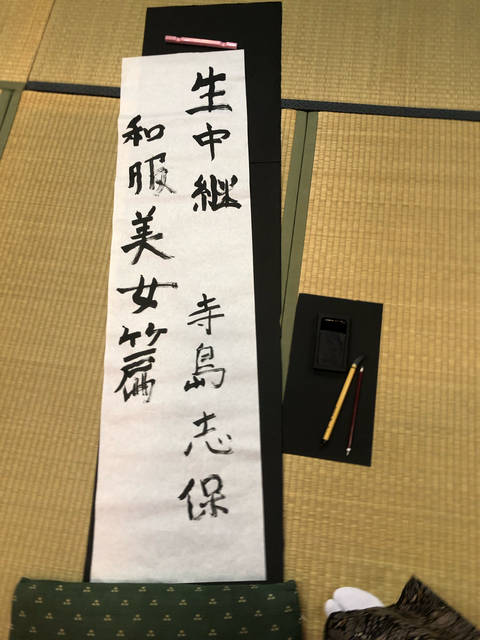 生中継 寺島志保
和服美女篇